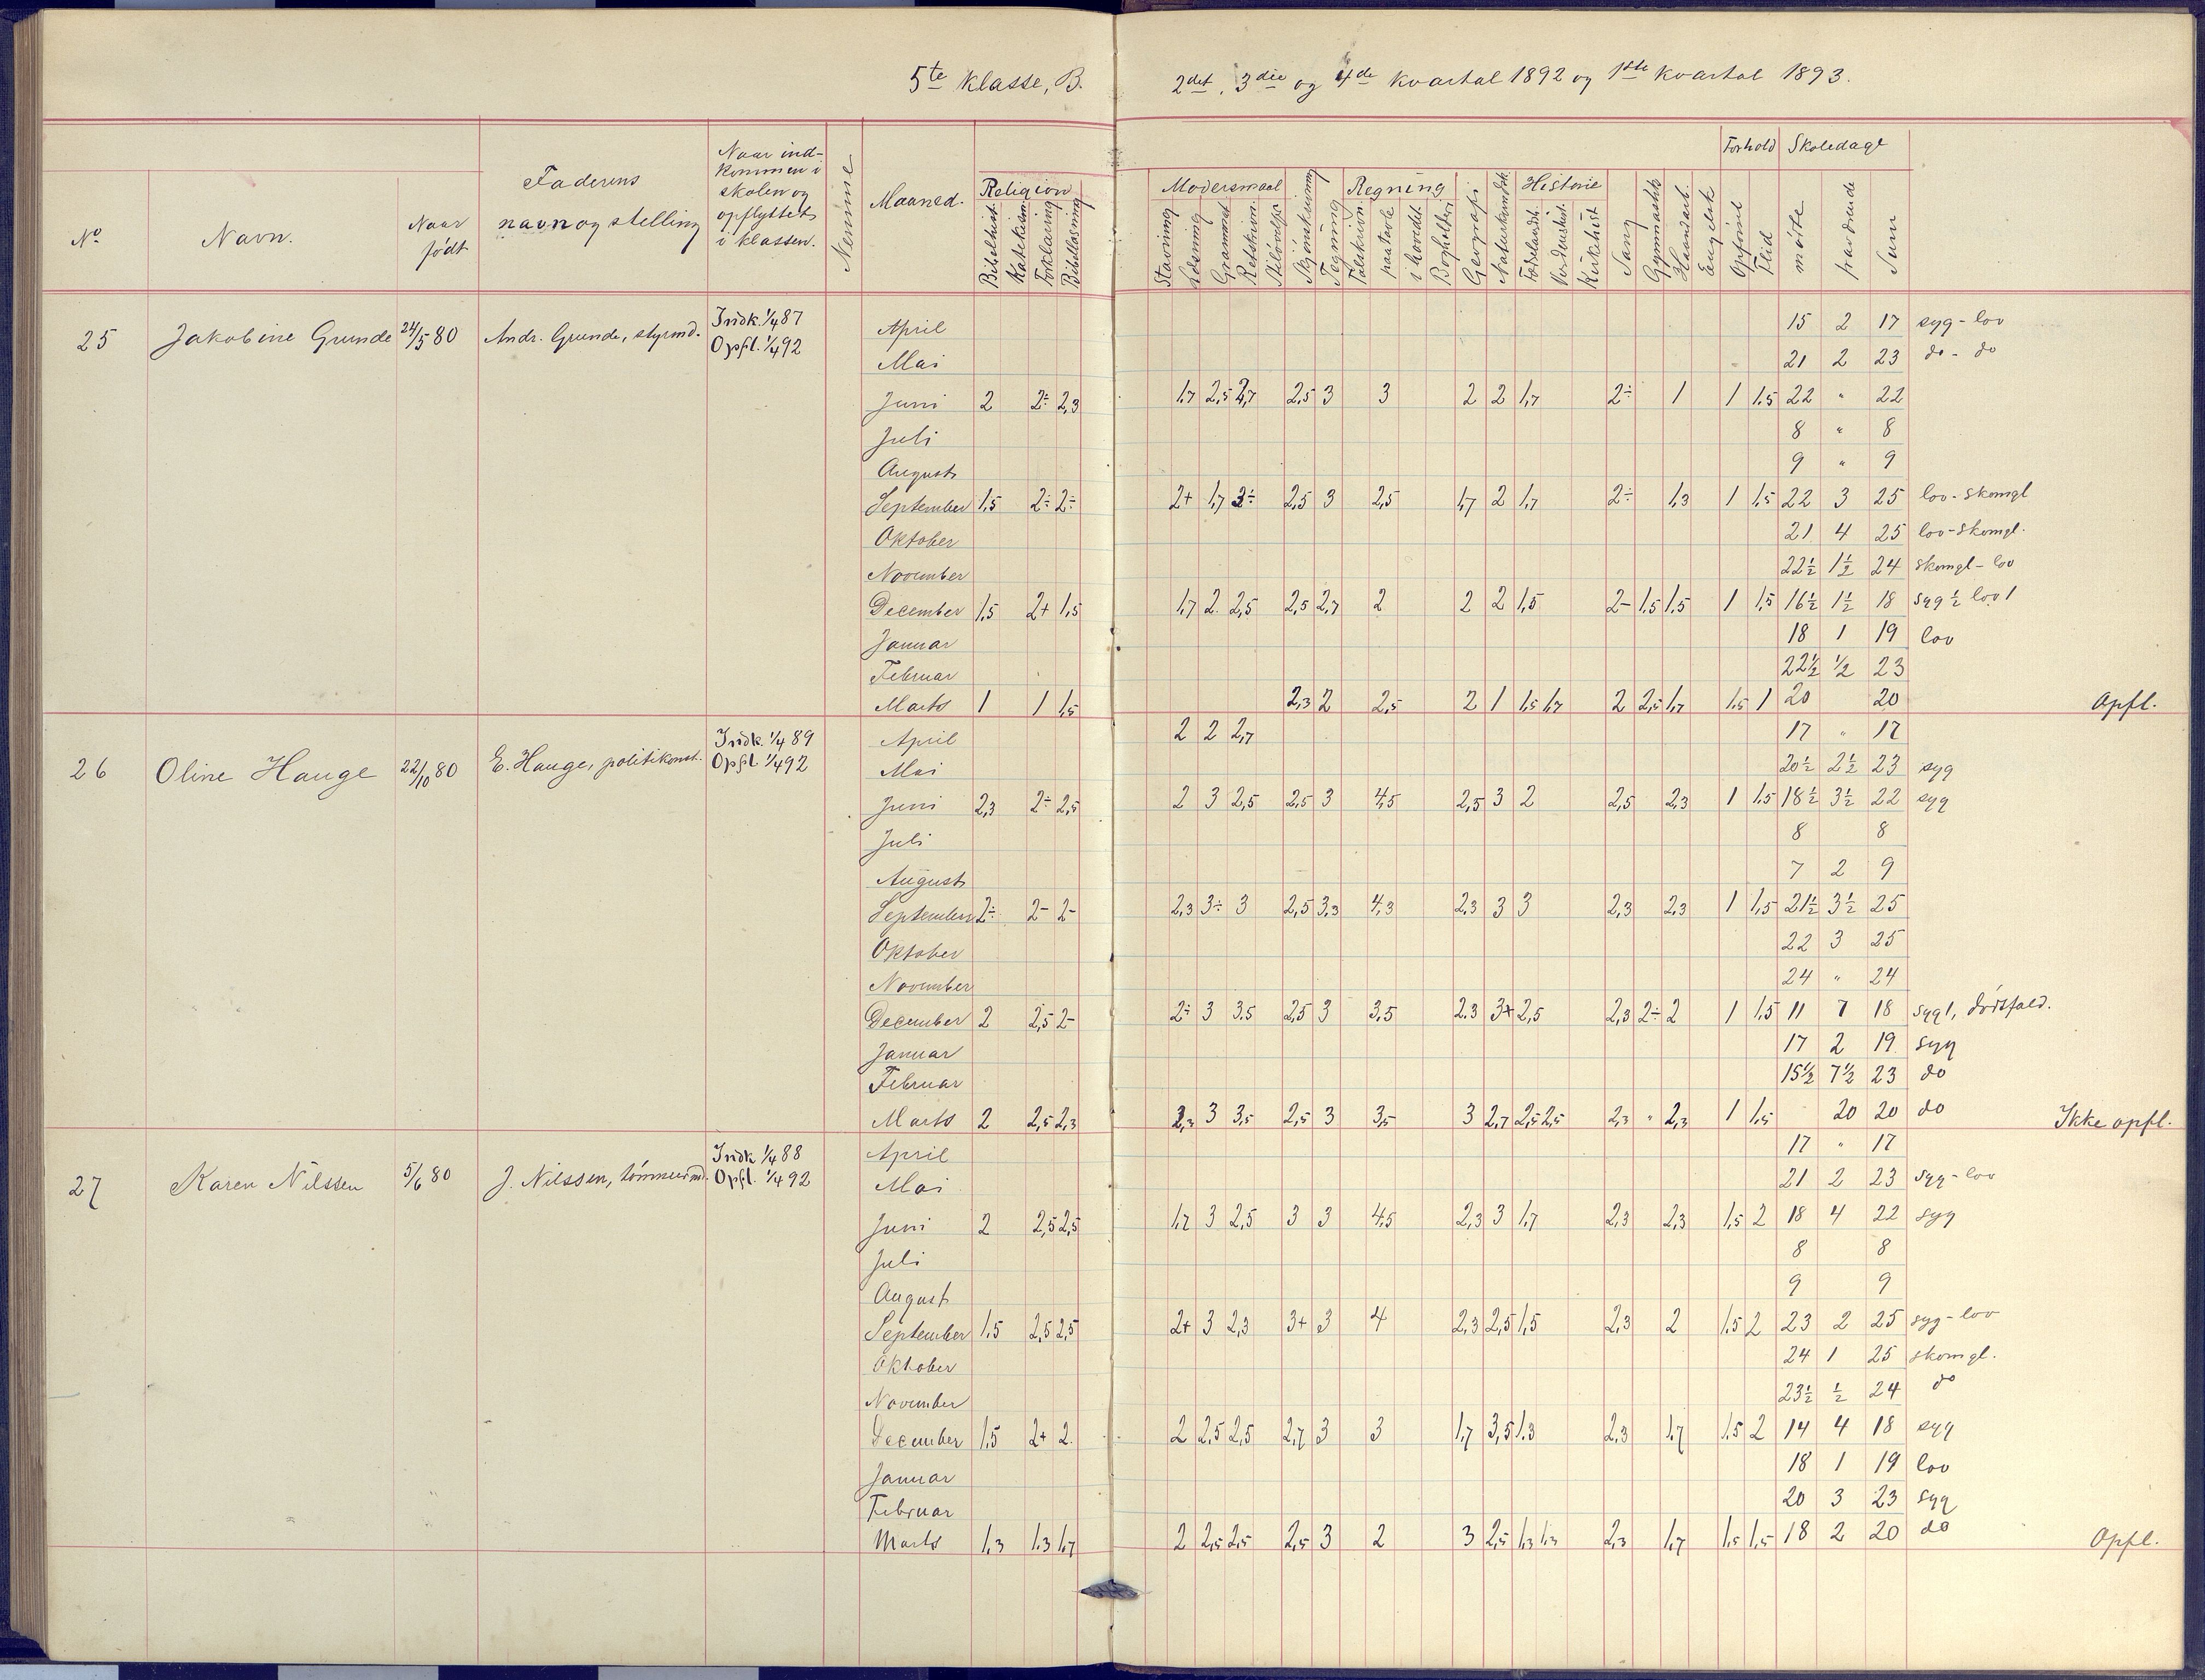 5te klasse, B. 2det, 3die og 4de kvartal 1892 og 1ste kvartal 1893.
No Navn. Naar født Faderens navn og stelling Naar indkommen i skolen og opflyttet i klassen. Nemme Maaned.
Religion Bibelhist. Katekism. Forklaring Bibellæsning
Modersmaal Stavning Læsning Grammat Retskrivn. Stiløvelse Skjønskrivning Tegning
Regning Talskrivn. paa tavle i hovedet Bogholderi Geografi Naturkundsk.
Historie Fædrelandsk. Verdenshist. Kirkehist Sang Gymnastik Haandarb. Engelsk
Forhold Opførsel Flid Skoledage møtte fraværende Sum
25 Jakobine Grunde 24/5 80 Andr. Grunde, styrmd. Indk. 1/4 87 Opfl. 1/4 92
April 15 2 17 syg - lov
Mai 21 2 23 do - do
Juni 2 2÷ 2,3 1,7 2,5 2,7 2,5 3 3 2 2 1,7 2÷ 1 1 1.5 22 " 22
Juli 8 " 8
August 9 " 9
September 1,5 2÷ 2÷ 2+ 1,7 2÷ 2,5 3 2,5 1,7 2 1,7 2÷ 1,3 1 1,5 22 3 25 lov - skomgl
Oktober 21 4 25 lov - skomgl.
November 22½ 1½ 24 skomgl - lov
December 1,5 2+ 1,5 1,7 2 2,5 2,5 2,7 2 2 2 1,5 2- 1,5 1,5 1 1,5 16½ 1½ 18 syg ½ lov 1
Januar 18 1 19 lov
Februar 22½ ½ 23
Marts 1 1 1,5 2,3 2 2,5 2 1 1,5 1,7 2 2,5 1,7 1,5 1 20 20 Opfl.
2 2 2,7
26 Oline Hauge 22/10 80 E. Hauge, politikonst. Indk. 1/4 89 Opfl. 1/4 92
April 17 " 17
Mai 20½ 2½ 23 syg
Juni 2,3 2÷ 2,5 2 3 2,5 2,5 3 4,5 2,5 3 2 2,5 2,3 1 1,5 18½ 3½ 22 syg
Juli 8 8
August 7 2 9
September 2÷ 2- 2- 2,3 3÷ 3 2,5 3,3 4,3 2,3 3 3 2,3 2,3 1 1,5 21½ 3½ 25
Oktober 22 3 25
November 24 " 24
December 2 2,5 2- 2÷ 3 3.5 2,5 3 3,5 2.3 3+ 2,5 2,3 2÷ 2 1 1.5 11 7 18 syg 1, dødsfald.
Januar 17 2 19 syg
Februar 15½ 7½ 23 do
Marts 2 2,5 2,3 2,3 3 3,5 2,5 3 3,5 3 2,7 2,5 2,5 2,3 " 2,3 1 1,5 20 20 do Ikke opfl.
27 Karen Nilssen 5/6 80 J. Nilssen, tømmermd. Indk 1/4 88 Opfl. 1/4 92
April 17 " 17
Mai 21 2 23 syg - lov
Juni 2 2,5 2,5 1,7 3 2,5 3 3 4,5 2,3 3 1,7 2,3 2,3 1,5 2 18 4 22 syg
Juli 8 8
August 9 9
September 1.5 2,5 2,5 2+ 3 2,3 3+ 3 4 2,3 2,5 1,5 2,3 2 1.5 2 23 2 25 syg - lov
Oktober 24 1 25 skomgl.
November 23½ ½ 24 do
December 1,5 2+ 2 2 2,5 2,5 2,7 3 3 1,7 3,5 1.3 2,3 1,7 1.5 2 14 4 18 syg
Januar 18 1 19 lov
Februar 20 3 23 syg
Marts 1,3 1.3 1,7 2 2,5 2,5 2,5 3 2 3 2,5 1,3 1,3 2,3 1,7 1,5 1,5 18 2 20 do Opfl.